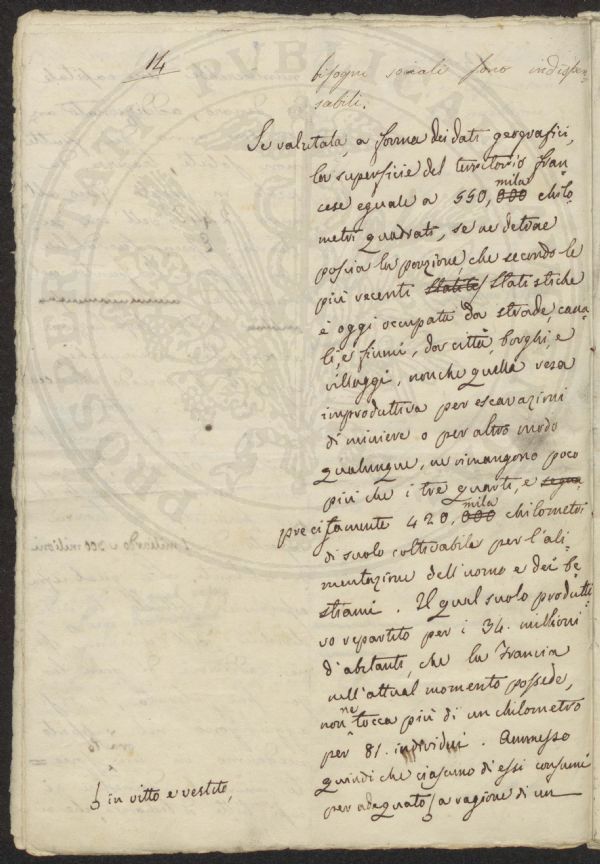 14
bisogni sociali sono indispen-
sabili.
Se valutata, a forma dei dati geografici,
la superficie del territorio fran-
cese eguale a 550, 000 mila chilo-
metri quadrati, se ne detrae
poscia la porzione, che secondo le
più recenti statiche
è oggi occupata da strade, cana-
li, e fiumi, da città, borghi, e
villaggi, nonche quella resa
improduttiva per escavazioni
di miniere o per altro modo
qualunque, ne rimangono poco
più che i tre quarti, e
precisamente 420, 000 mila chilometri
di suolo coltivabile per l'ali-
mentazione dell'uomo e dei be-
stiami. Il qual suolo produtti-
vo repartito per i 34. millioni
d'abitanti, che la Francia
nell'attual momento possede,
non ne tocca più di un chilometro
per 81. individui. Ammesso
quindi che ciascuno di essi consumi
per adequato a ragione di un
in vitto e vestito,
PROSPERITATI PVBLICAE